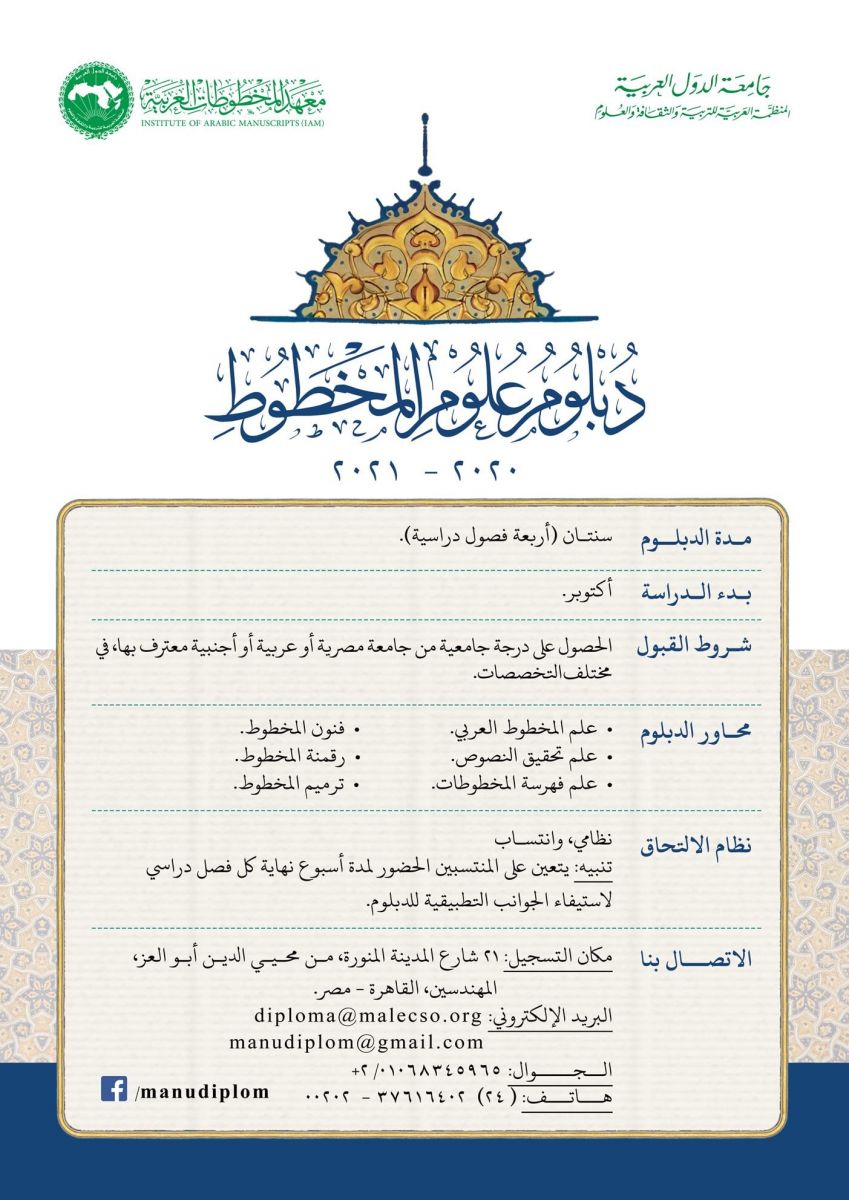 جامعة الدول العربية
المنظمة العربية للتربية والثقافة والعلوم
معهد المخطوطات العربية
INSTITUTE OF ARABIC MANUSCRIPTS (IAM)
دُبلُومُ عُلُومِ المَخطُوطِ
٢٠٢٠ - ٢٠٢١
مـدة الدبلـــوم
سنتــان (أربعة فصول دراسية).
بـدء الـدراسة
أكتوبر.
شـروط القبول
الحصول على درجة جامعية من جامعة مصرية أو عربية أو أجنبية معترف بها، في
مختلف التخصصات.
محــاور الدبلوم
• علم المخطوط العربي.
• علم تحقيق النصوص.
• علم فهرسة المخطوطات.
• فنون المخطوط.
• رقمنة المخطوط.
• ترميم المخطوط.
نظام الالتحاق
نظامي، وانتســاب
تنبيه: يتعين على المنتسبين الحضور لمدة أسبوع نهاية كل فصل دراسي
لاستيفاء الجوانب التطبيقية للدبلوم.
الاتصـــال بنا
مكان التسجيل: ٢١ شارع المدينة المنورة، مـن محـيـي الديـن أبـو العز،
المهندسين، القاهرة - مصر.
البريد الإلكتروني: diploma@malecso.org
manudiplom@gmail.com
الـجــــوال: ٠١٠٦٨٣٤٥٩٦٥ /٢+
هـاتــف: (٢٤) ٣٧٦١٦٤٠٢ - ٠٠٢٠٢
/manudiplom